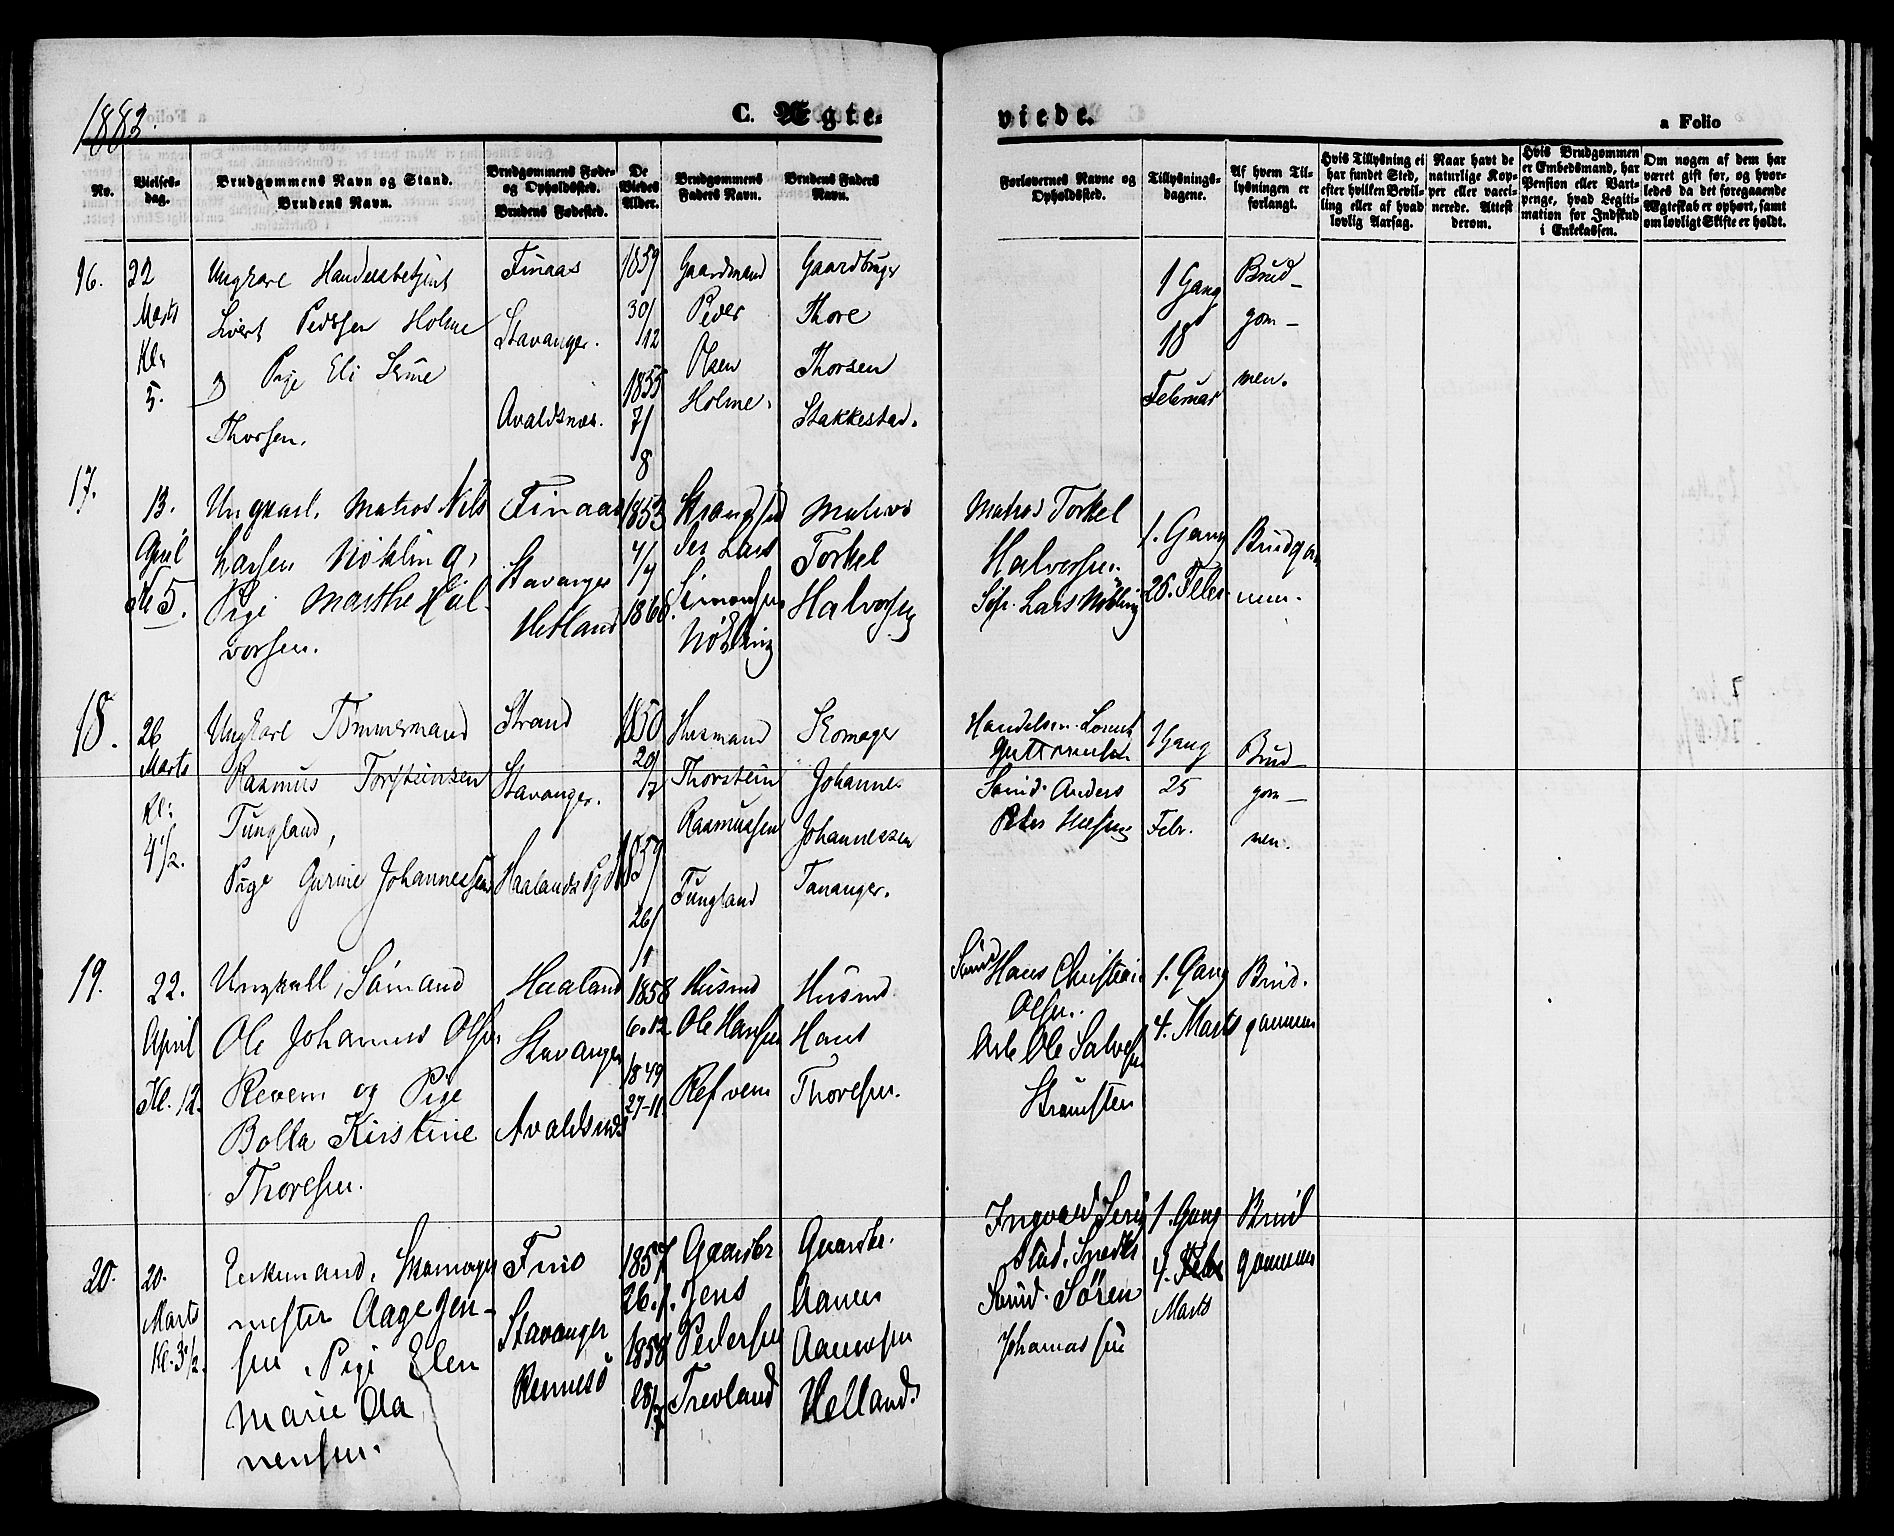 1883.
C. Ægte-
viede.
a Folio
No.
Vielses-
dag.
Brudgommens Navn og Stand.
Brudens Navn.
Brudgommens Føde-
og Opholdssted.
Brudens Fødested.
De
Viedes
Alder.
Brudgommens
Faders Navn.
Brudens Faders
Navn.
Forlovernes Navne og
Opholdssted.
Tillysnings-
dagene.
Af hvem Til-
lysningen er
forlangt.
Hvis Tillysning ei
har fundet Sted,
efter hvilken Bevil-
ling eller af hvad
lovlig Aarsag.
Naar havt de
naturlige Kop-
per eller vacci-
nerede. Attest
derom.
Hvis Brudgommen
er Embedsmand, har
Pension eller Vart-
penge, hvad Legiti-
mation for Indskud
i Enkekassen.
Om nogen af dem har
været gift før, og hvor-
ledes da det foregaaende
Ægteskab er ophørt, samt
om lovligt Skifte er holdt.
16.
22
Marts
Kl.
5.
Ungkarl Handelsbetjent
Sivert Pedersen Holme
Pige Eli Serine
Thorsen.
Finaas
Stavanger.
Avaldsnæs.
1859
30/
12
1855
7/
8
Gaardmand
Peder
Olsen
Holme.
Gaardbruger
Thore
Thorsen
Stakkestad.
1 Gang
18
Februar
Brud-
gom-
men.
17.
13.
April
Kl 5.
Ungkarl. Matros Nils
Larsen Nökling,
Pige Marthe Hal-
vorsen.
Finaas
Stavanger
Hetland
1853
4/
1860.
Lars
Simonsen
Nökling
Matros
Torkel
Halvorsen
Matros Torkel
Halvorsen.
Lars Nökling
1. Gang
25. Febr.
Brudgom
men.
18.
26
Marts
Kl:
4 1/2.
Ungkarl Tömmermand
Rasmus Torsteinsen
Tungland,
Pige Gurine Johannessen
Strand
Stavanger.
Haalands Pgd
1850
20/
1859
26/
Husmand
Thorstein
Rasmussen
Tungland
Skomager
Johannes
Johannessen
Tananger.
Anders
1 Gang
25
Febr.
Brud-
gom-
men.
19.
22.
April
Kl. 12.
Ungkarl, Sömand
Ole Johannes Olsen
Revem og Pige
Bolla Kirstine
Thoresen.
Haaland
Stavanger
Avaldsnæs
1858
6.12
1849
27-11.
Husmd
Ole Hansen
Refvem
Husmd.
Hans
Thoresen.
Sömd Hans Christian
Olsen.
Arb Ole Salvesen
1. Gang
4. Marts
Brud.
gommen
20.
20.
Marts
Kl. 3 1/2.
Enkemand. Skomager
mester Aage Jen-
sen. Pige Elen
Marie Aa
nensen.
Stavanger
Rennesö
1857
26.1.
1858
28/
7
Gaardbr
Jens
Pedersen
Trevland
Gaardbr.
Aanen
Aanensen
Helland
Ingvald
Sömd. Sören
Johannessen
1. Gang
4. Febr
Marts
Brud
gommen